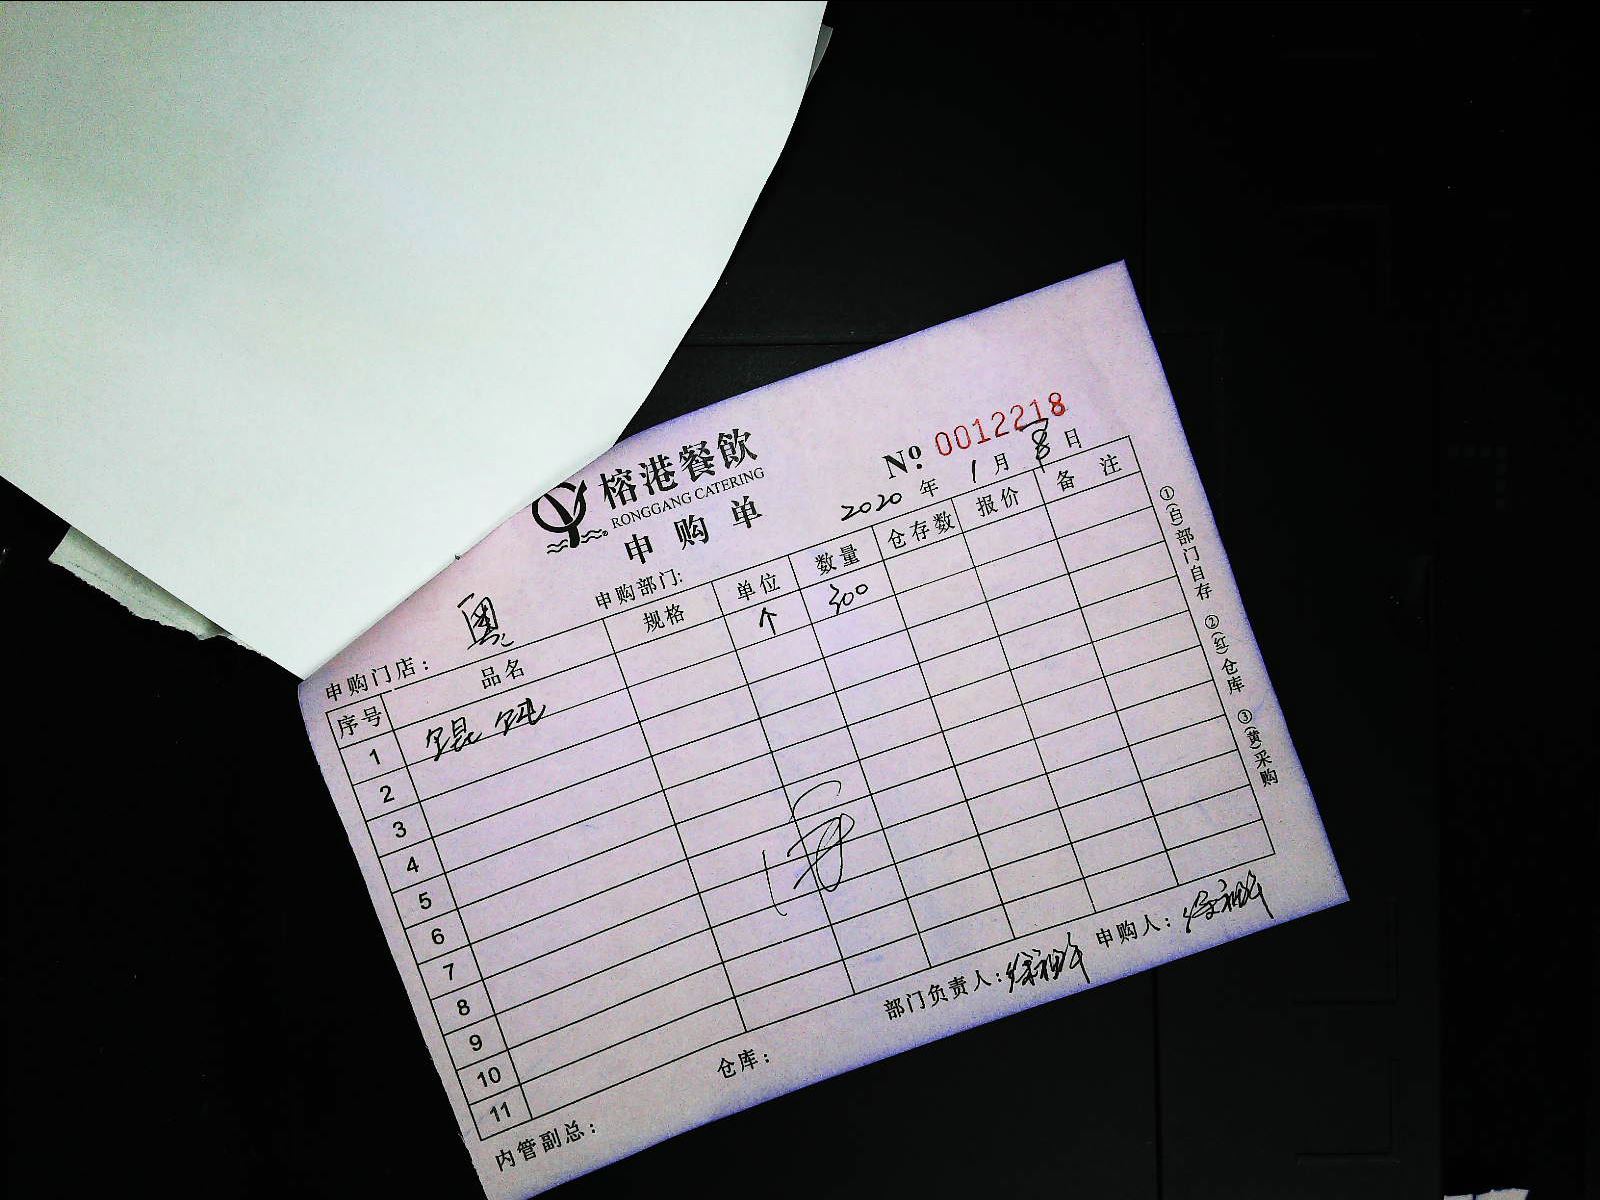 榕港餐飲
RONGGANG CATERING
申购单
№: 0012218
2020 年 1 月 8 日
申购门店: 粤
申购部门:
序号 品名 规格 单位 数量 仓存数 报价 备注
1 锟钝 个 300
2
3
4
5
6
7
8
9
10
11
①(白)部门自存 ②(红)仓库 ③(黄)采购
内管副总:
仓库:
部门负责人:
申购人: